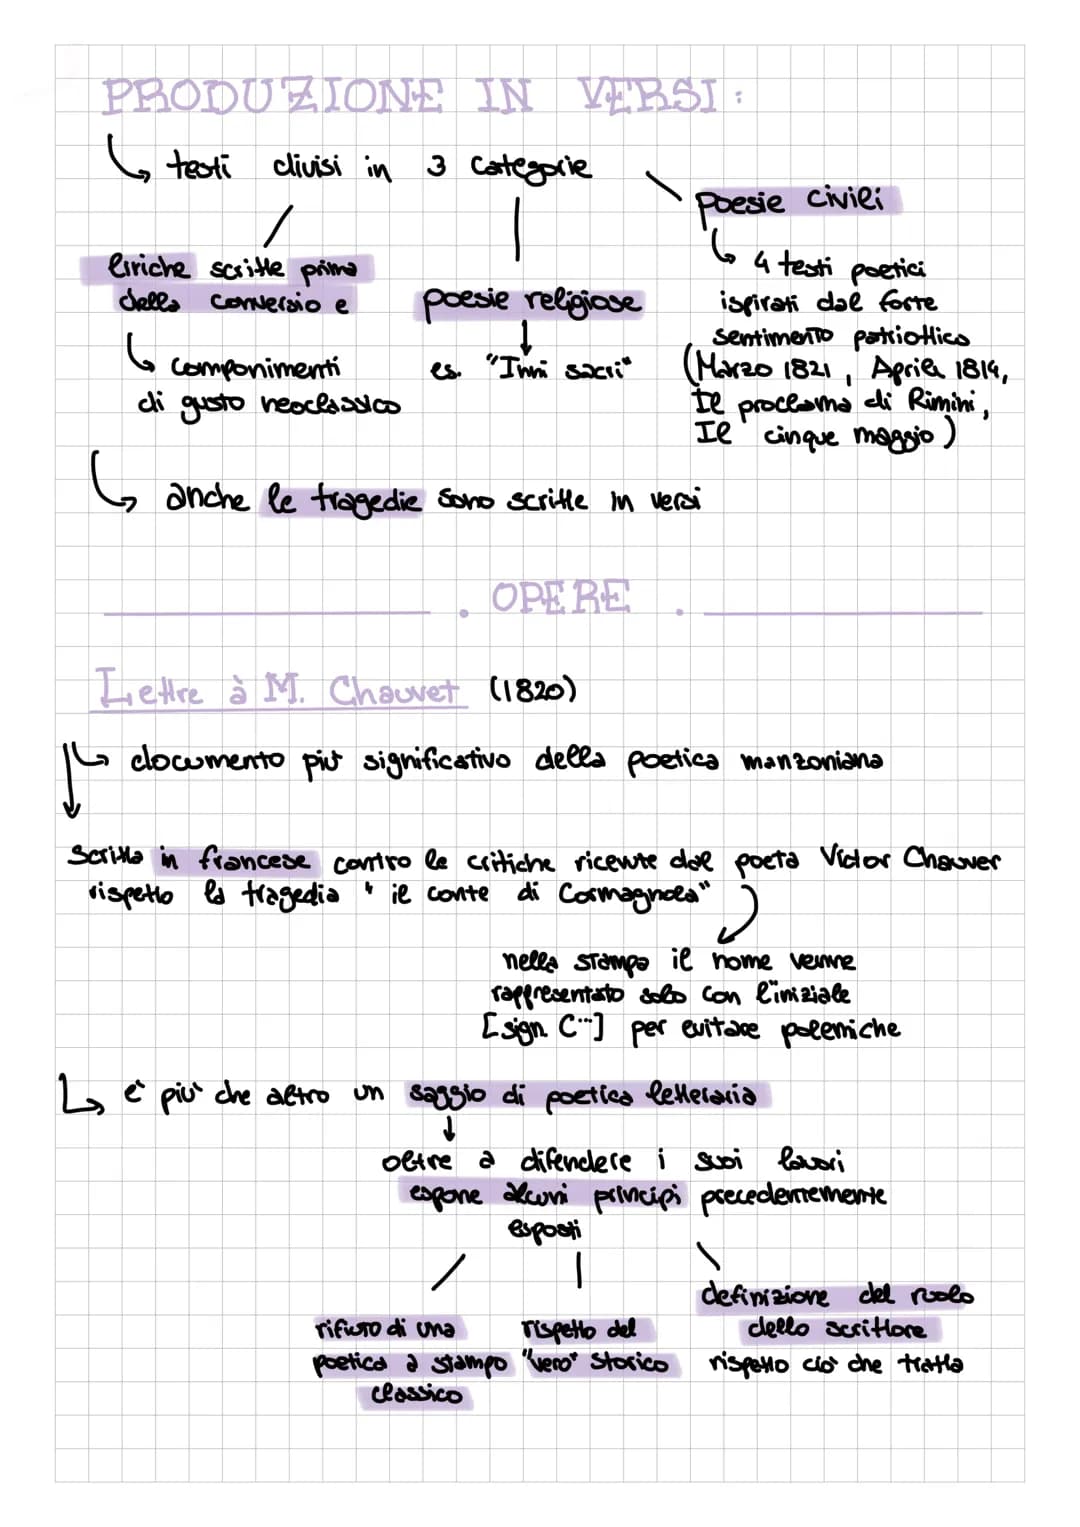 PRODUZIONE IN VERSI:
testi divisi in 3 categorie
liriche scritte prima
della conversio e
componimenti
di gusto neoclassico
poesie religiose
es. "Inni sacri"
poesie civili
4 testi poetici
ispirati dal forte
sentimento patriottico
(Marzo 1821, Aprile 1814,
Il proclama di Rimini,
Il cinque maggio)
anche le tragedie sono scritte in versi
. OPERE .
Lettre à M. Chauvet (1820)
documento più significativo della poetica manzoniana
Scritta in francese contro le critiche ricevute dal poeta Victor Chauver
rispetto la tragedia "il conte di Carmagnola"
nella stampa il nome venne
rappresentato solo con l'iniziale
[sign. C***] per evitare polemiche
è più che altro un saggio di poetica letteraria
oltre a difendere i suoi lavori
espone alcuni principi precedentemente
esposti
rifiuto di una
poetica a stampo
classico
rispetto del
"vero" storico
definizione del ruolo
dello scrittore
rispetto ciò che tratta